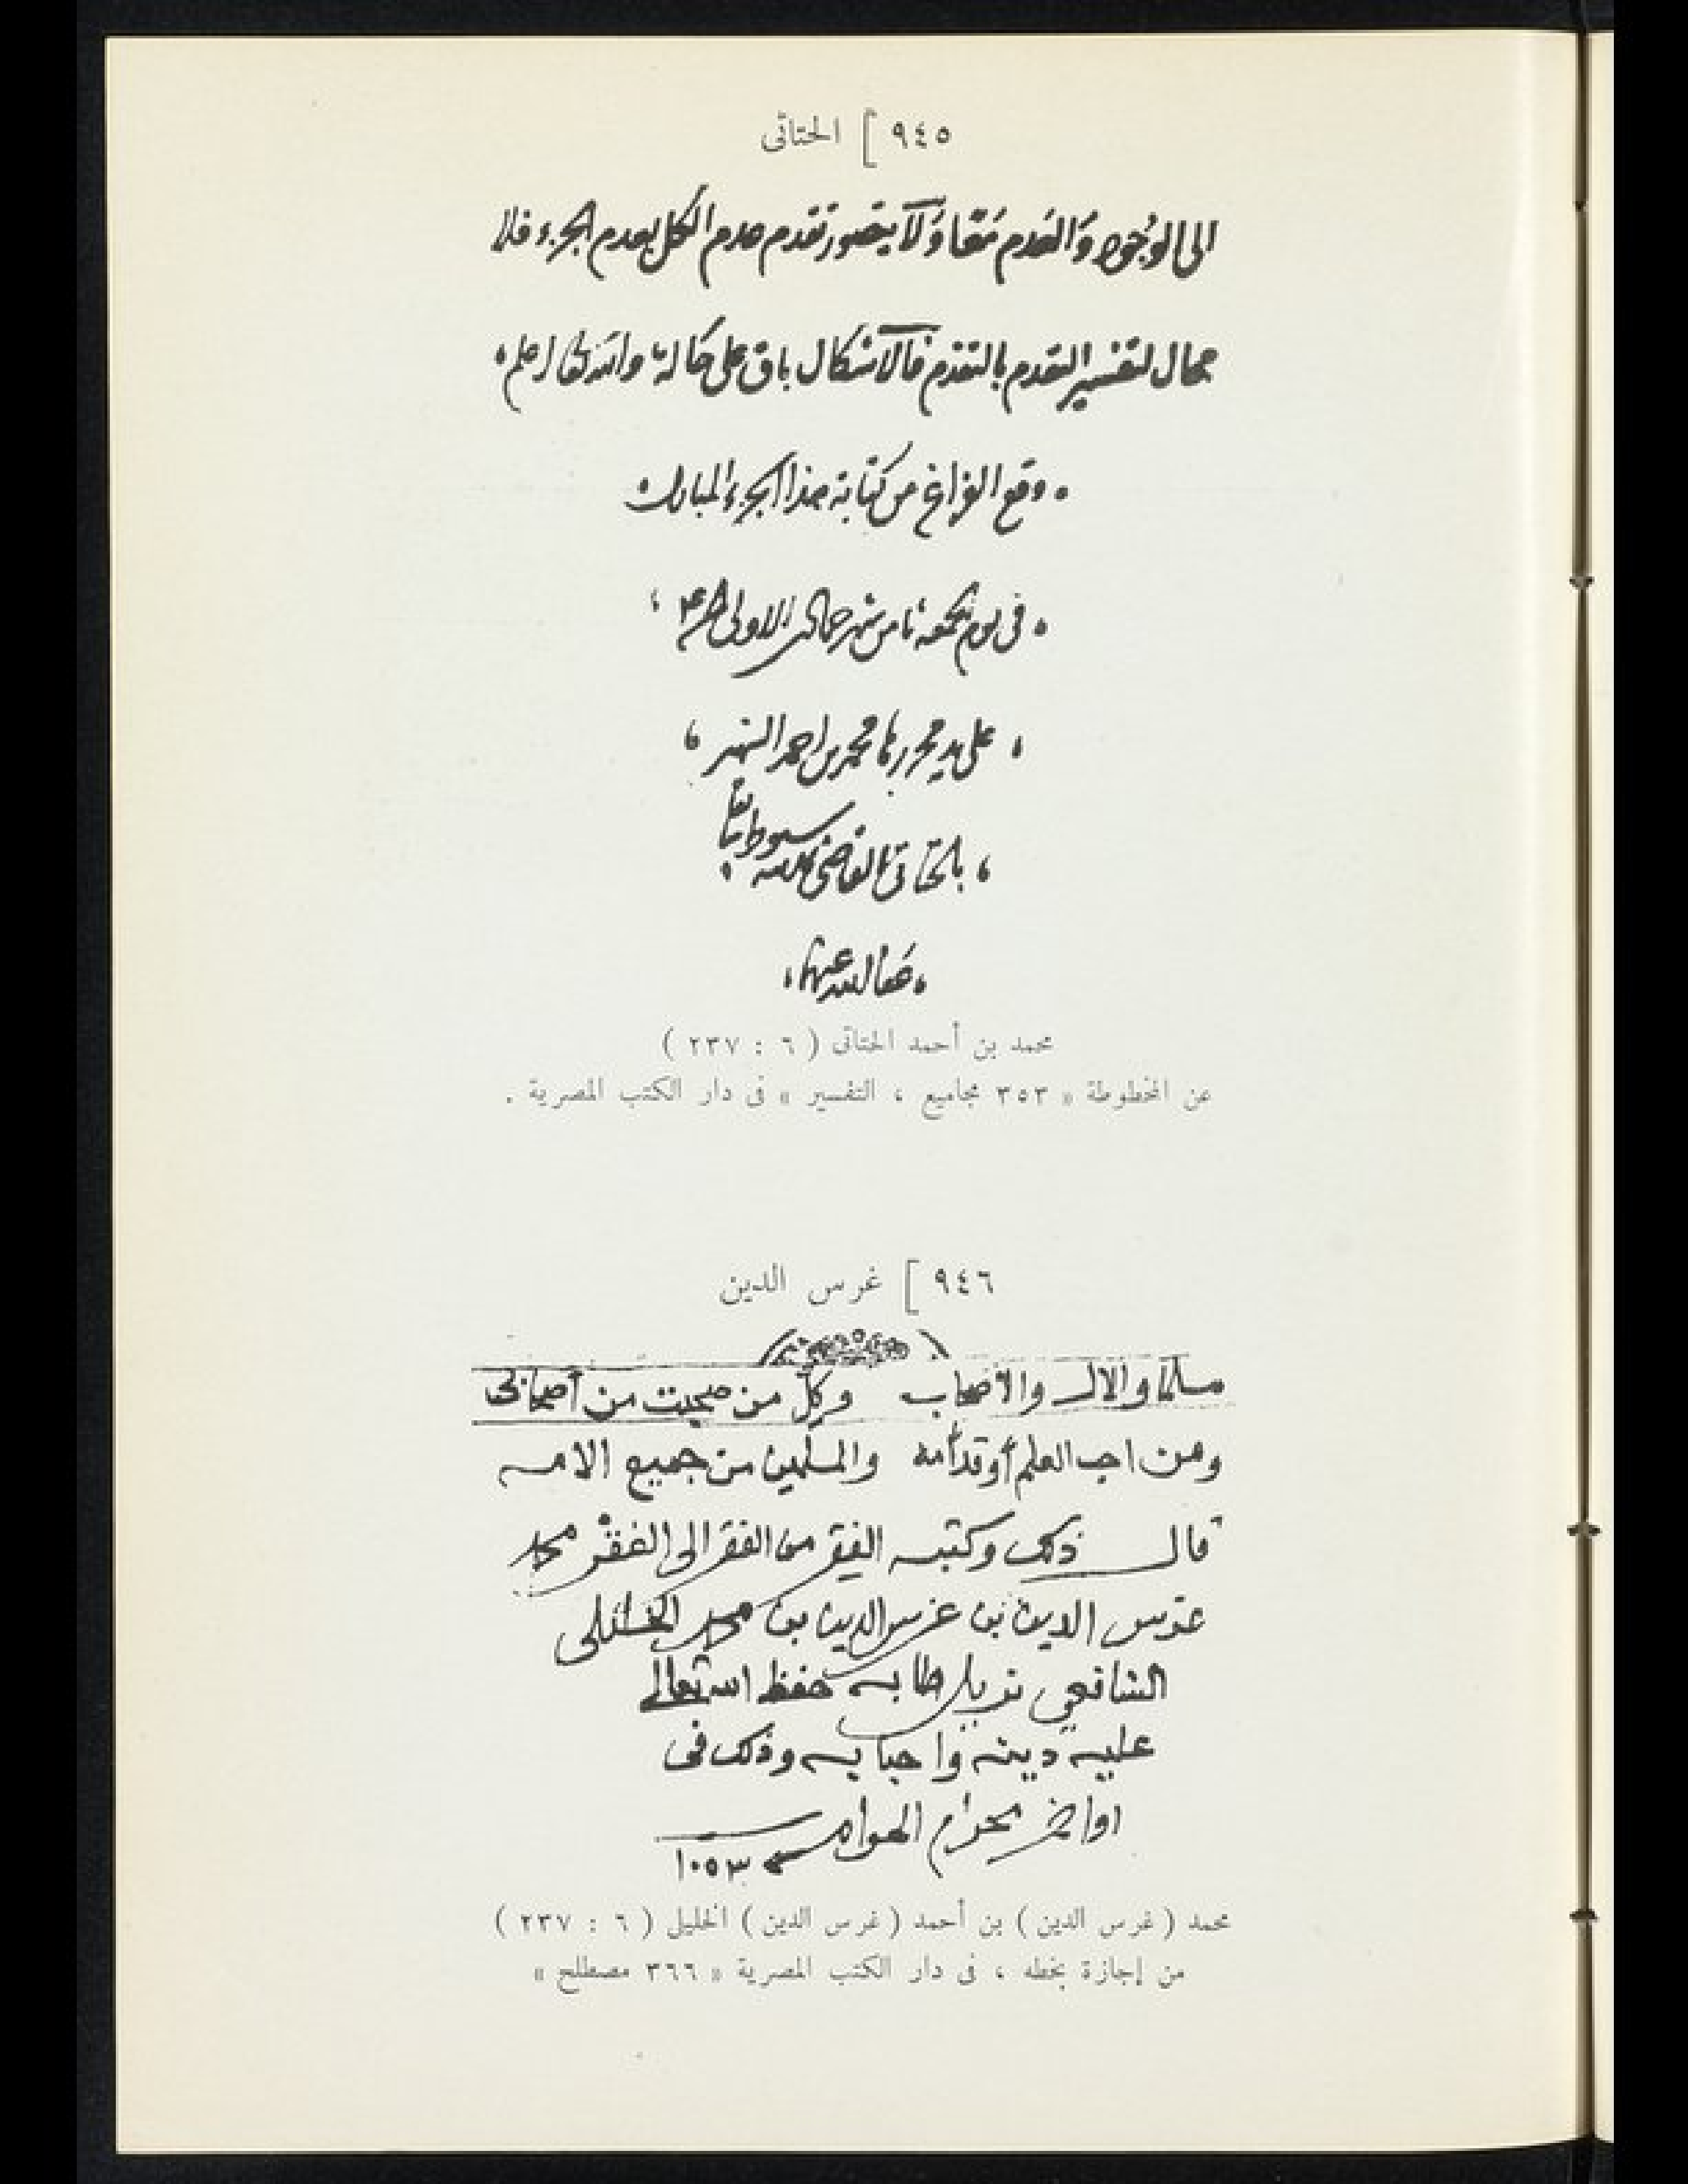 ٩٤٥ ] الحتاتى
الى الوجود والعدم معا ولا يتصور تقدم عدم الكل بعدم الجزء فلا
مجال لتفسير التقدم بالتقدم فالاشكال باق على حاله والله تعالى اعلم
وقع الفراغ من كتابة هذا الجزء المبارك
فى يوم الجمعة ثامن شهر جمادى الاولى
على يد محررها محمد بن احمد الشهير
بالحتاتى القاضى
عفا الله عنهما
محمد بن أحمد الحتاتى ( ٦ : ٢٣٧ )
عن المخطوطة « ٣٥٣ مجاميع ، التفسير » فى دار الكتب المصرية .
٩٤٦ ] غرس الدين
مسلما والال والاصحاب وكل من صحبت من أصحابى
ومن احب العلم أو قد أمه والمسلمين من جميع الامه
قال ذلك وكتبه الفقير من الفقر الى الفقر محمد
غرس الدين بن غرس الدين بن محمد الخليلى
الشافعي نزيل طابه حفظ الله تعالى
عليه دينه واحبابه وذلك فى
اواخر محرام الحرام
١٠٥٣
محمد ( غرس الدين ) بن أحمد ( غرس الدين ) الخليلى ( ٦ : ٢٣٧ )
من إجازة بخطه ، فى دار الكتب المصرية « ٣٦٦ مصطلح »